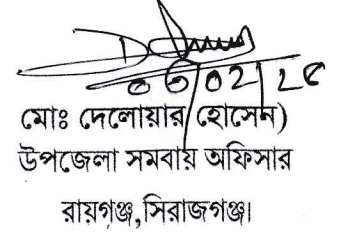 ০৬/০২/২৫
মোঃ দেলোয়ার হোসেন)
উপজেলা সমবায় অফিসার
রায়গঞ্জ,সিরাজগঞ্জ।